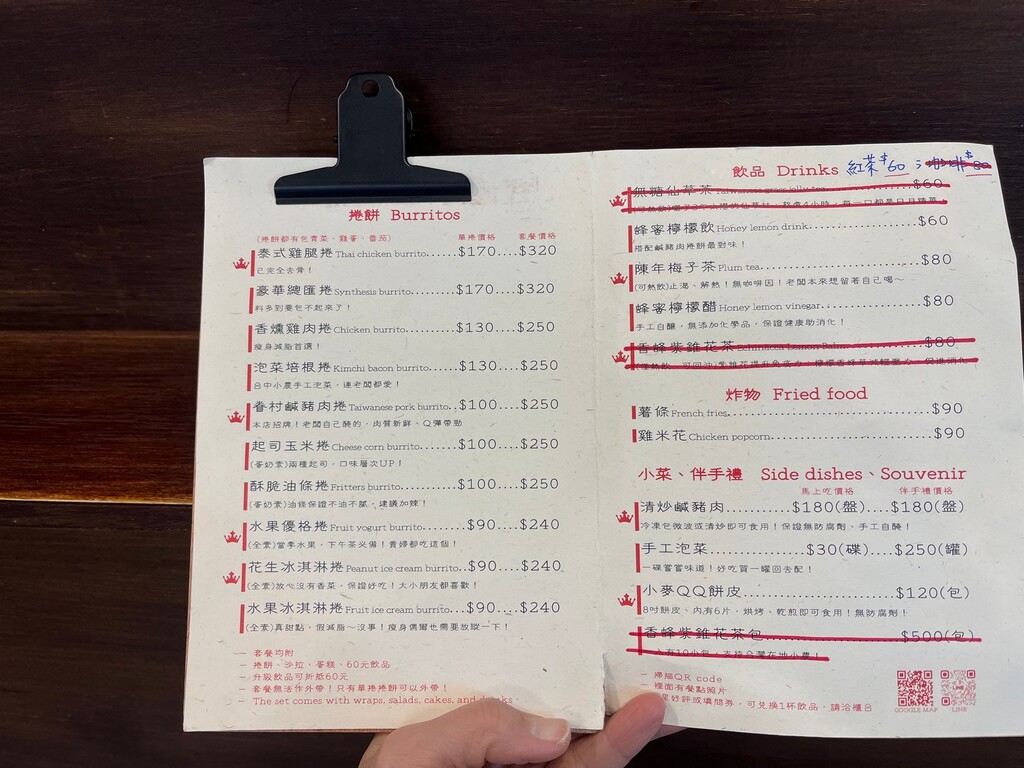 捲餅 Burritos
(捲餅都有包青菜、雞蛋、番茄) 單捲價格 套餐價格
泰式雞腿捲 Thai chicken burrito......$170....$320
已完全去骨！
豪華總匯捲 Synthesis burrito.........$170....$320
料多到要包不起來了！
香燻雞肉捲 Chicken burrito..........$130....$250
瘦身減脂首選！
泡菜培根捲 Kimchi bacon burrito.....$130....$250
台中小農手工泡菜，連老闆都愛！
眷村鹹豬肉捲 Taiwanese pork burrito..$100....$250
本店招牌！老闆自己醃的，肉質新鮮、Q彈帶勁
起司玉米捲 Cheese corn burrito......$100....$250
(蛋奶素)兩種起司，口味層次UP！
酥脆油條捲 Fritters burrito..........$100....$250
(蛋奶素)油條保證不油不膩，建議加辣！
水果優格捲 Fruit yogurt burrito.......$90....$240
(全素)當季水果，下午茶必備！貴婦都吃這個！
花生冰淇淋捲 Peanut ice cream burrito..$90....$240
(全素)放心沒有香菜，保證好吃！大小朋友都喜歡！
水果冰淇淋捲 Fruit ice cream burrito...$90....$240
(全素)真甜點，假減脂～沒事！瘦身偶爾也需要放縱一下！
— 套餐均附
— 捲餅、沙拉、蛋糕、60元飲品
— 升級飲品可折抵60元
— 套餐無法作外帶！只有單捲捲餅可以外帶！
— The set comes with wraps, salads, cakes, and drinks.
飲品 Drinks 紅茶$60；咖啡$80
無糖仙草茶 Taiwanese grass jelly tea..............$60
蜂蜜檸檬飲 Honey lemon drink..................$60
搭配鹹豬肉捲餅最對味！
陳年梅子茶 Plum tea...........................$80
(可熱飲)止渴、解熱！無咖啡因！老闆本來想留著自己喝～
蜂蜜檸檬醋 Honey lemon vinegar................$80
手工自釀，無添加化學品，保證健康助消化！
香蜂紫錐花茶 Echinacea Lemon Balm.............$80
炸物 Fried food
薯條 French fries................................$90
雞米花 Chicken popcorn.........................$90
小菜、伴手禮 Side dishes、Souvenir
馬上吃價格 伴手禮價格
清炒鹹豬肉............$180(盤)....$180(盤)
冷凍包微波或清炒即可食用！保證無防腐劑、手工自醃！
手工泡菜................$30(碟)....$250(罐)
一碟嘗嘗味道！好吃買一罐回去配！
小麥QQ餅皮..........................$120(包)
8吋餅皮、內有6片，烘烤、乾煎即可食用！無防腐劑！
香蜂紫錐花茶包.......................$500(包)
— 掃描QR code
— 裡面有餐點照片
星好評或填問券，可兌換1杯飲品，請洽櫃台
GOOGLE MAP LINE